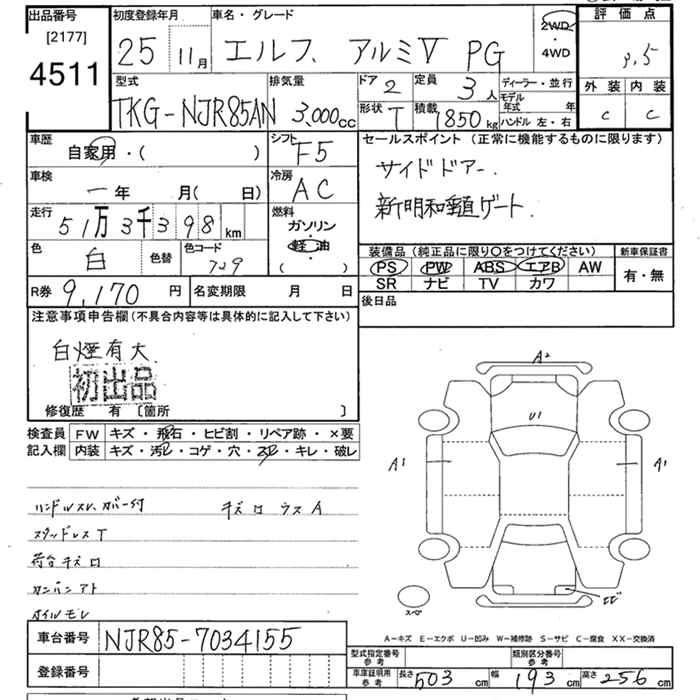 出品番号 初度登録年月 車名・グレード 2WD 評価点
[2177] 25 11月 エルフ アルミV PG ・ 3.5
4511 4WD
型式 排気量 ドア 2 定員 3人 ディーラー・並行 外装 内装
TKG-NJR85AN 3,000cc 形状 T 積載 1850kg モデル年式 年 C C
ハンドル 左・右
車歴 シフト セールスポイント (正常に機能するものに限ります)
自家用・( ) F5 サイドドアー.
車検 冷房
一年 月( 日) AC 新明和製ゲート.
走行 燃料
51万3千398km ガソリン
色 白 色替 色コード 729 軽油 装備品 (純正品に限り○をつけてください) 新車保証書
( ) PS PW ABS エアB AW 有・無
R券 9,170円 名変期限 月 日 SR ナビ TV カワ
後日品
注意事項申告欄 (不具合内容等は具体的に記入して下さい)
白煙有大.
初出品
修復歴 有 [箇所 ]
検査員 FW キズ・飛石・ヒビ割・リペア跡・×要
記入欄 内装 キズ・汚レ・コゲ・穴・スレ・キレ・破レ
A2
U1
A1 A1
ハンドルスレ、カバー付 キズロ ウスA
スタッドレスT
荷台キズロ
カンバンアト
オイルモレ
スペア
サビ
A-キズ E-エクボ U-凹み W-補修跡 S-サビ C-腐食 XX-交換済
車台番号 NJR85-7034155
型式指定番号 参考 類別区分番号 参考
登録番号 車庫証明用 参考 長さ 503cm 幅 193cm 高さ 256cm